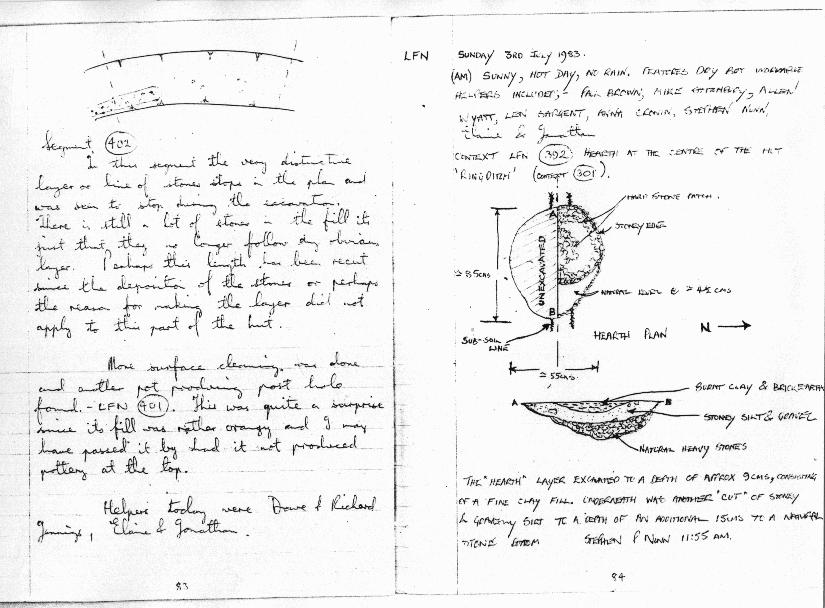 Segment 402
In this segment the very distinctive
layer or line of stones stops in the plan and
was seen to stop during the excavation.
There is still a lot of stones in the fill its
just that they no longer follow any obvious
layer. Perhaps this length has been recut
since the deposition of the stones or perhaps
the reason for making the layer did not
apply to this part of the hut.
More surface cleaning was done
and another pot producing post hole
found. - LFN 401. This was quite a surprise
since its fill was rather orangy and I may
have passed it by had it not produced
pottery at the top.
Helpers today were Dave & Richard
Jennings, Elaine & Jonathan.
83
LFN SUNDAY 3RD JULY 1983.
(AM) SUNNY, HOT DAY, NO RAIN. FEATURES DRY BUT WORKABLE
HELPERS INCLUDED;- PAUL BROWN, MIKE ALLEN
WYATT, LEN SARGENT, ANNA CRONIN, STEPHEN NUNN,
Elaine & Jonathan
CONTEXT LFN 392: HEARTH AT THE CENTRE OF THE HUT
'RINGDITCH' (CONTEXT 301).
HARD STONE PATCH.
A
STONEY EDGE
UNEXCAVATED
≃ 85cms
NATURAL LEVEL @ ≃ 45 cms
B
SUB-SOIL
LINE
HEARTH PLAN N
≃ 55cms.
BURNT CLAY & BRICKEARTH
A B
STONEY SILT & GRAVEL
NATURAL HEAVY STONES
THE "HEARTH" LAYER EXCAVATED TO A DEPTH OF APPROX 9CMS, CONSISTING
OF A FINE CLAY FILL. UNDERNEATH WAS ANOTHER "CUT" OF STONEY
& GRAVELLY SILT TO A DEPTH OF AN ADDITIONAL 15CMS TO A NATURAL
STEPHEN P NUNN 11:55 AM.
84